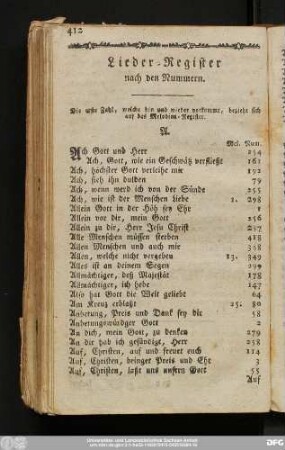 412
Lieder-Register
nach den Nummern.
Die erste Zahl, welche hin und wieder vorkommt, bezieht sich
auf das Melodien-Register.
A.
Mel. Num.
Ach Gott und Herr 254
Ach, Gott, wie ein Geschwätz verfließt 161
Ach, höchster Gott verleihe mir 192
Ach, sieh ihn dulden 79
Ach, wenn werd ich von der Sünde 255
Ach, wie ist der Menschen Liebe 1. 298
Allein Gott in der Höh sey Ehr 1
Allein vor dir, mein Gott 256
Allein zu dir, Herr Jesu Christ 257
Alle Menschen müssen sterben 418
Allen Menschen und auch mir 348
Allen, welche nicht vergeben 13. 349
Alles ist an deinem Segen
Allmächtiger, deß Majestät 178
Allmächtiger, ich hebe 147
Also hat Gott die Welt geliebt 64
Am Kreuz erblaßt 25. 80
Anbetung, Preis und Dank sey dir 58
Anbetungswürdger Gott 2
An dich, mein Gott, zu denken 279
An dir hab ich gesündigt, Herr 258
Auf, Christen, auf und freuet euch 114
Auf, Christen, bringet Preis und Ehr 3
Auf, Christen, laßt uns unsern Gott 55
Auf